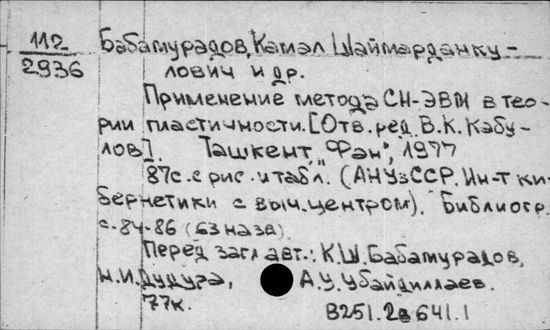 112
2936
Бабамурадов, Камал Шаймарданку-
лович и др.
Применение метода СН-ЭВМ в тео-
рии пластичности. [Отв. ред. В.К. Кабу-
лов]. Ташкент, "Фан", 1977
87с. с рис. и табл. (АН УзССР. Ин-т ки-
бернетики с выч. центром). Библиогр.
с. 84-86 (63 назв).
Перед загл авт.: К.Ш. Бабамурадов,
Н.И. Дудура, А.У. Убайдиллаев.
77к.
В251.2в641.1